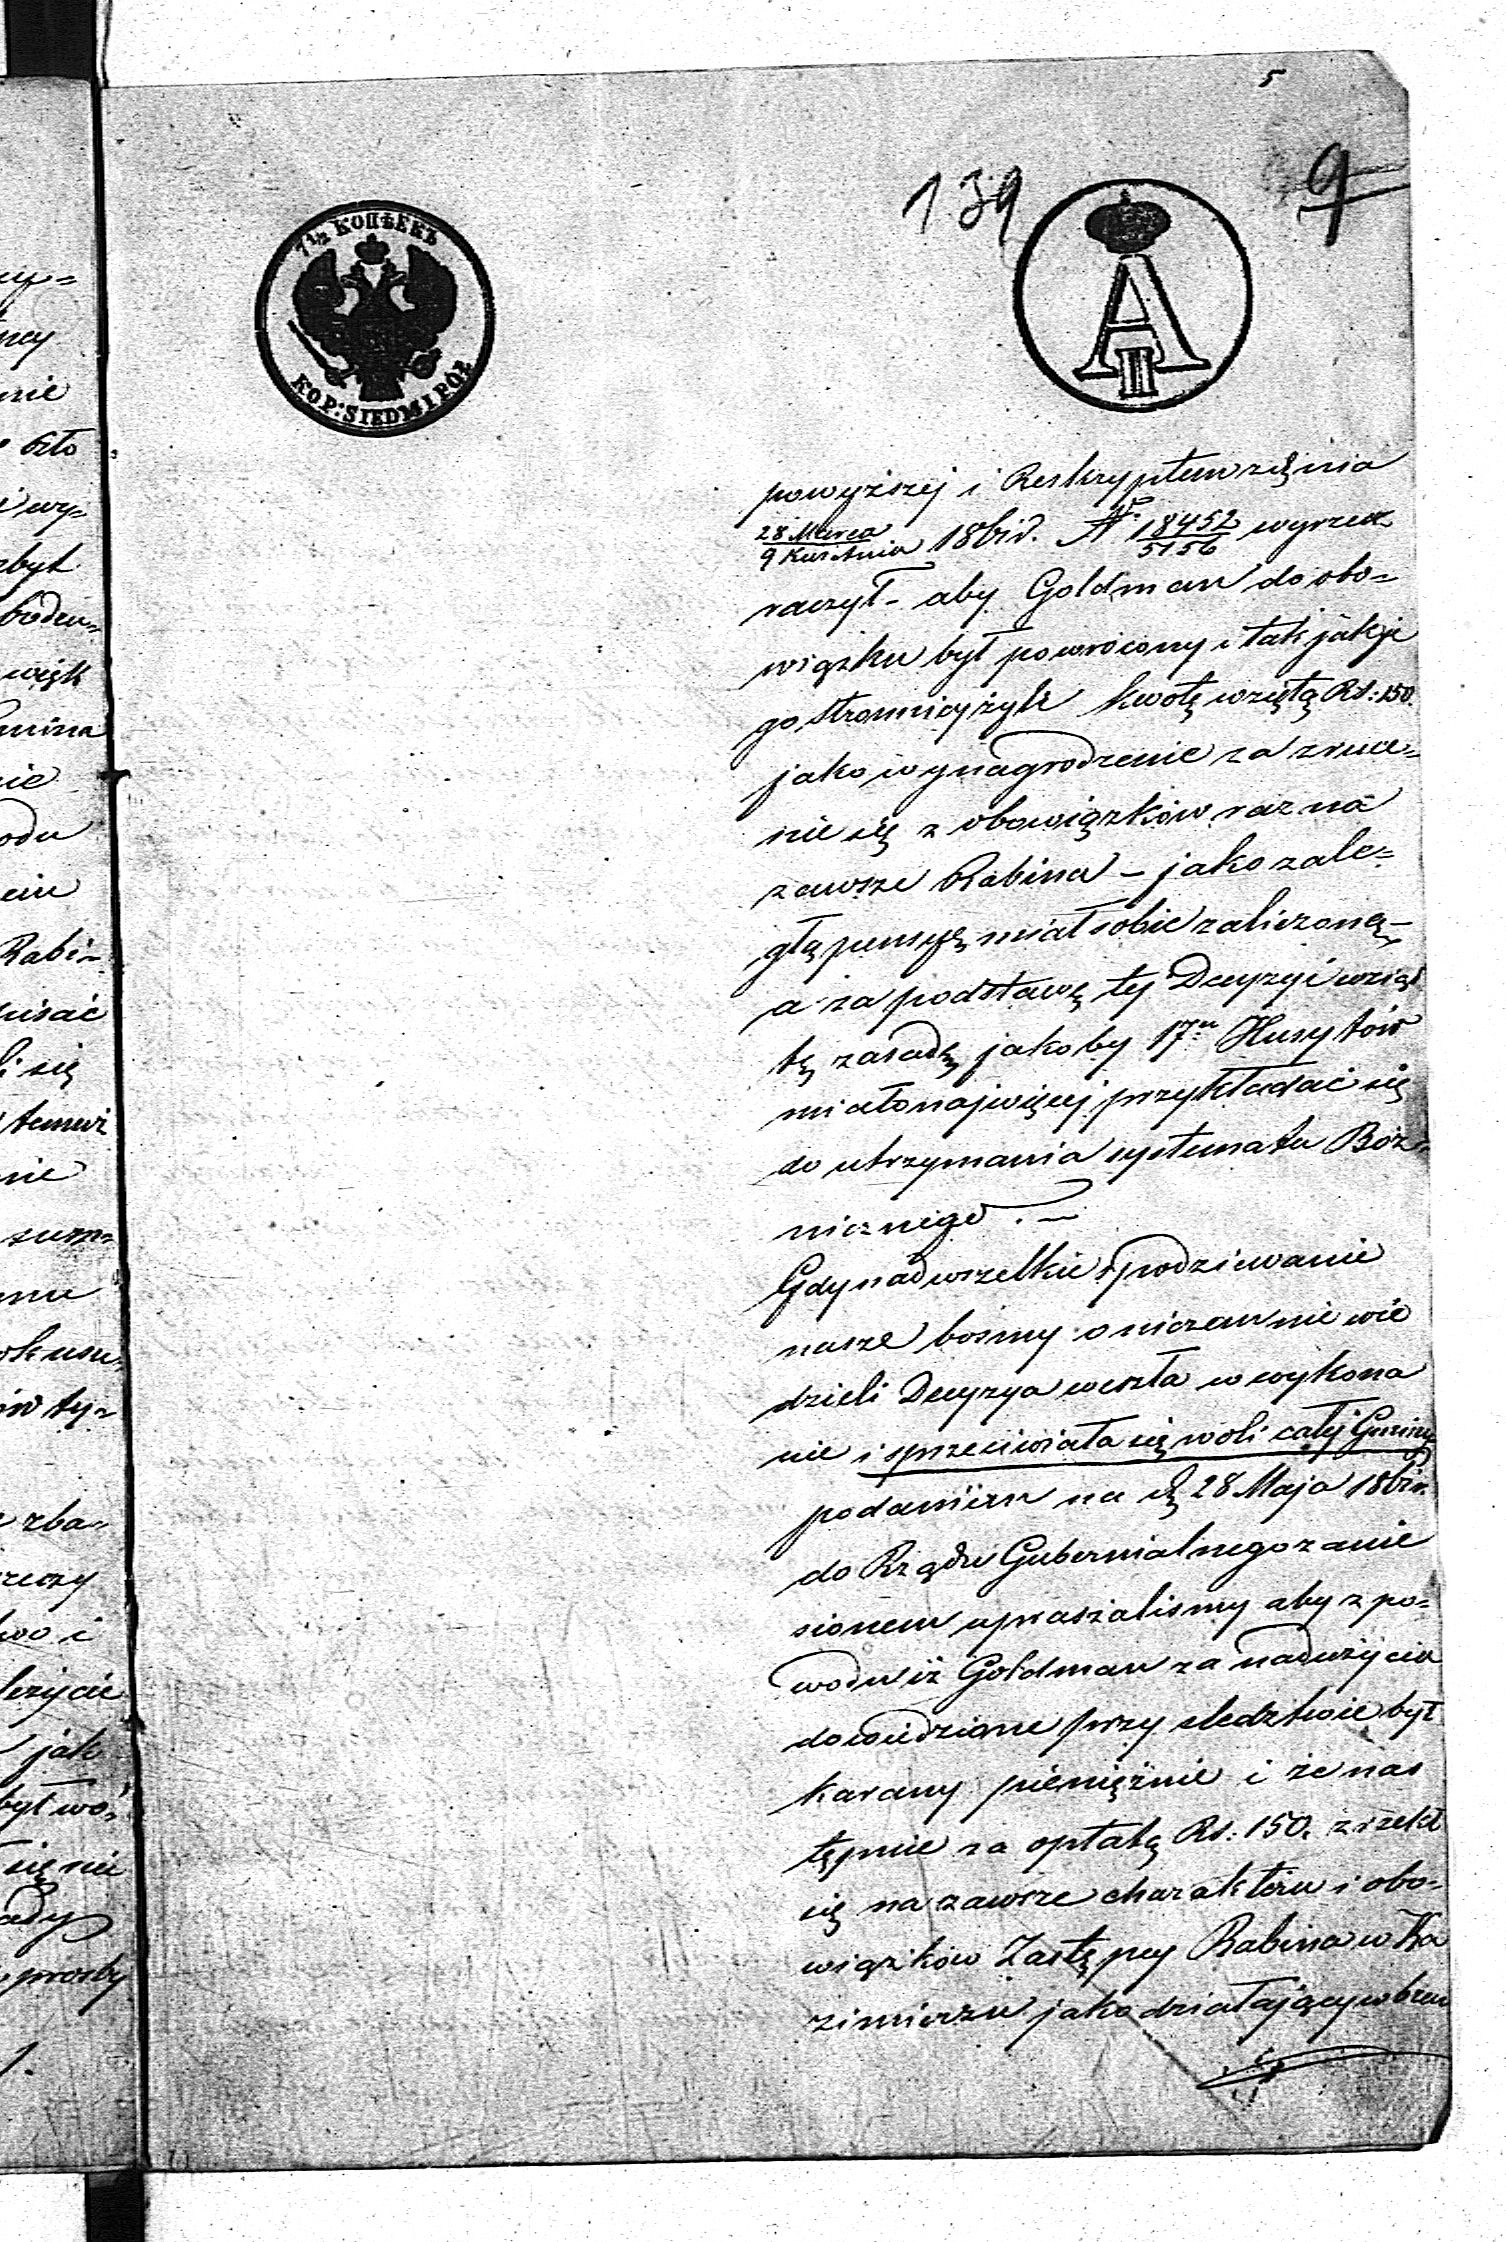 5
139
9
7½ КОПѢЕКЪ
KOP: SIEDM I POŁ
A
II
powyższej i Reskryptem z dnia
28 Marca / 9 Kwietnia 1861 r. Nº 18452/5156 wyrzec
raczył – aby Goldman do obo=
wiązku był powrócony i tak jak je
go stronnicy żyli kwotę wziętą Rs: 150.
jako wynagrodzenie za zrzec=
nie się z obowiązków raz na
zawsze Rabina – jako zale=
głą pensyę miał sobie zaliczoną –
a za podstawę tej Decyzyi wziął
tę zasadę jakoby 17u Husytów
miało najwięcej przykładać się
do utrzymania systematu Boż=
nicznego. –
Gdy nad wszelkie spodziewanie
nasze bośmy o niczem nie wie
dzieli Decyzya weszła w wykona
nie i sprzeciwiała się woli całej Gminy
podaniem na d. 28 Maja 1861 r.
do Rządu Gubernialnego zanie
sionem upraszalismy aby z po=
wodu iż Goldman za nadużycia
dowiedzione przy sledztwie był
karany pieniężnie i że nas
tępnie za opłatą Rs: 150. zrzekł
się na zawsze charakteru i obo=
wiązków Zastępcy Rabina w Ka
zimierzu jako działający wbrew
my=
nie
wy=
zbyt
Gmina
nie
odu
Rabi=
pisać
li się
nie
zba=
rzeczy
jak
był wo=
się nie
prosby
1.